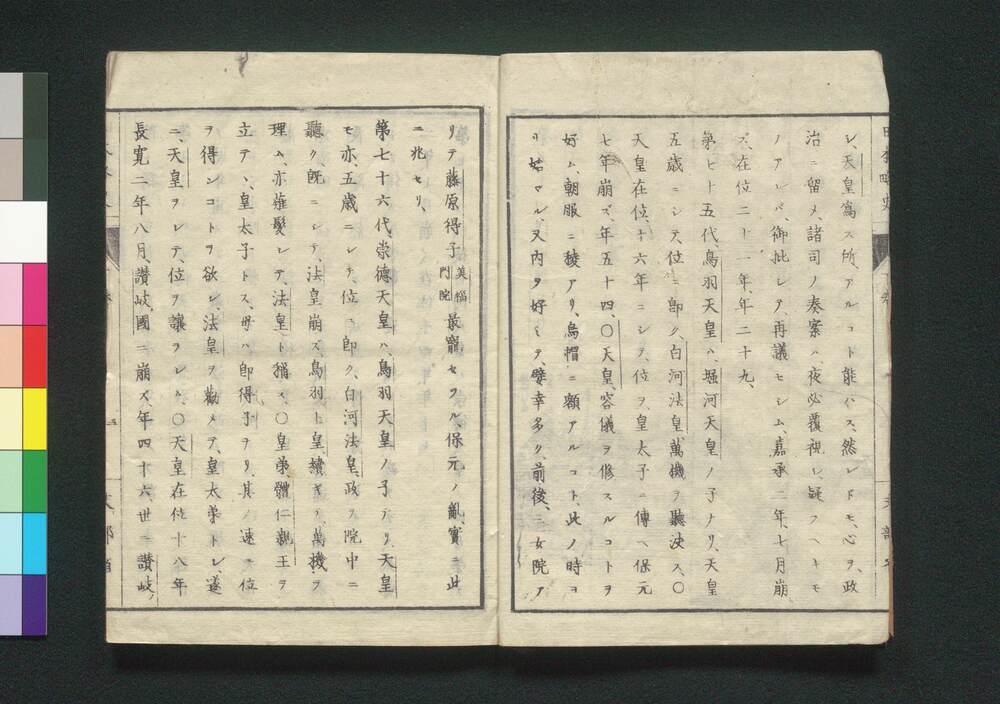 レ、天皇為ス所、アルコト能ハス、然レドモ、心ヲ、政
治ニ留メ、諸司ノ奏案ハ、夜必覆視シ、疑フヘキモ
ノアレバ、御批シテ、再議セシム、嘉承二年、七月崩
ズ、在位二十一年、年二十九、
第七十五代、鳥羽天皇ハ、堀河天皇ノ子ナリ、天皇
五歳ニシテ、位ニ即ク、白河法皇、萬機ヲ聽決ス、〇
天皇在位、十六年ニシテ、位ヲ、皇太子ニ傳ヘ、保元
七年崩ズ、年五十四、〇天皇、容儀ヲ修スルコトヲ
好ム、朝服ニ稜アリ、烏帽ニ額アルコト、此ノ時ヨ
リ始マル、又内ヲ好ミテ、嬖幸多ク、前後、三女院ア
リテ藤原得子美福門院最寵セラル、保元ノ亂、實ニ此
ニ兆セリ、
第七十六代、崇徳天皇ハ、鳥羽天皇ノ子ナリ、天皇
モ亦、五歳ニシテ、位ニ即ク、白河法皇、政ヲ院中ニ
聽ク、既ニシテ、法皇崩ズ、鳥羽上皇、續キテ、萬機ヲ
理ム、亦薙髮シテ、法皇ト稱ス、〇皇弟、體仁親王ヲ
立テヽ、皇太子トス、母ハ即得子ナリ、其ノ速ニ位
ヲ得ンコトヲ欲シ、法皇ヲ勸メテ、皇太弟トシ、遂
ニ、天皇ヲシテ、位ヲ讓ラシム、〇天皇在位十八年
長寛二年八月、讃岐國ニ崩ズ、年四十六、世ニ讃岐